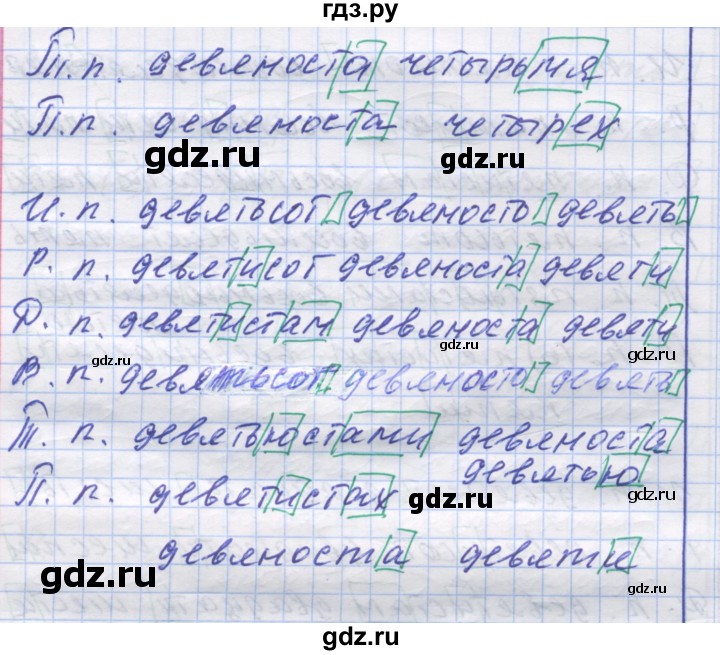 гдз.ру
Т.п. девяноста четырьмя
П.п. девяноста четырех
gdz.ru gdz.ru
И.п. девятьсот девяносто девять
Р.п. девятисот девяноста девяти
Д.п. девятистам девяноста девяти
gdz.ru gdz.ru
В.п. девятьсот девяносто девять
Т.п. девятьюстами девяноста
девятью
П.п. девятистах
gdz.ru
девяноста девяти
gdz.ru gdz.ru
gdz.ru